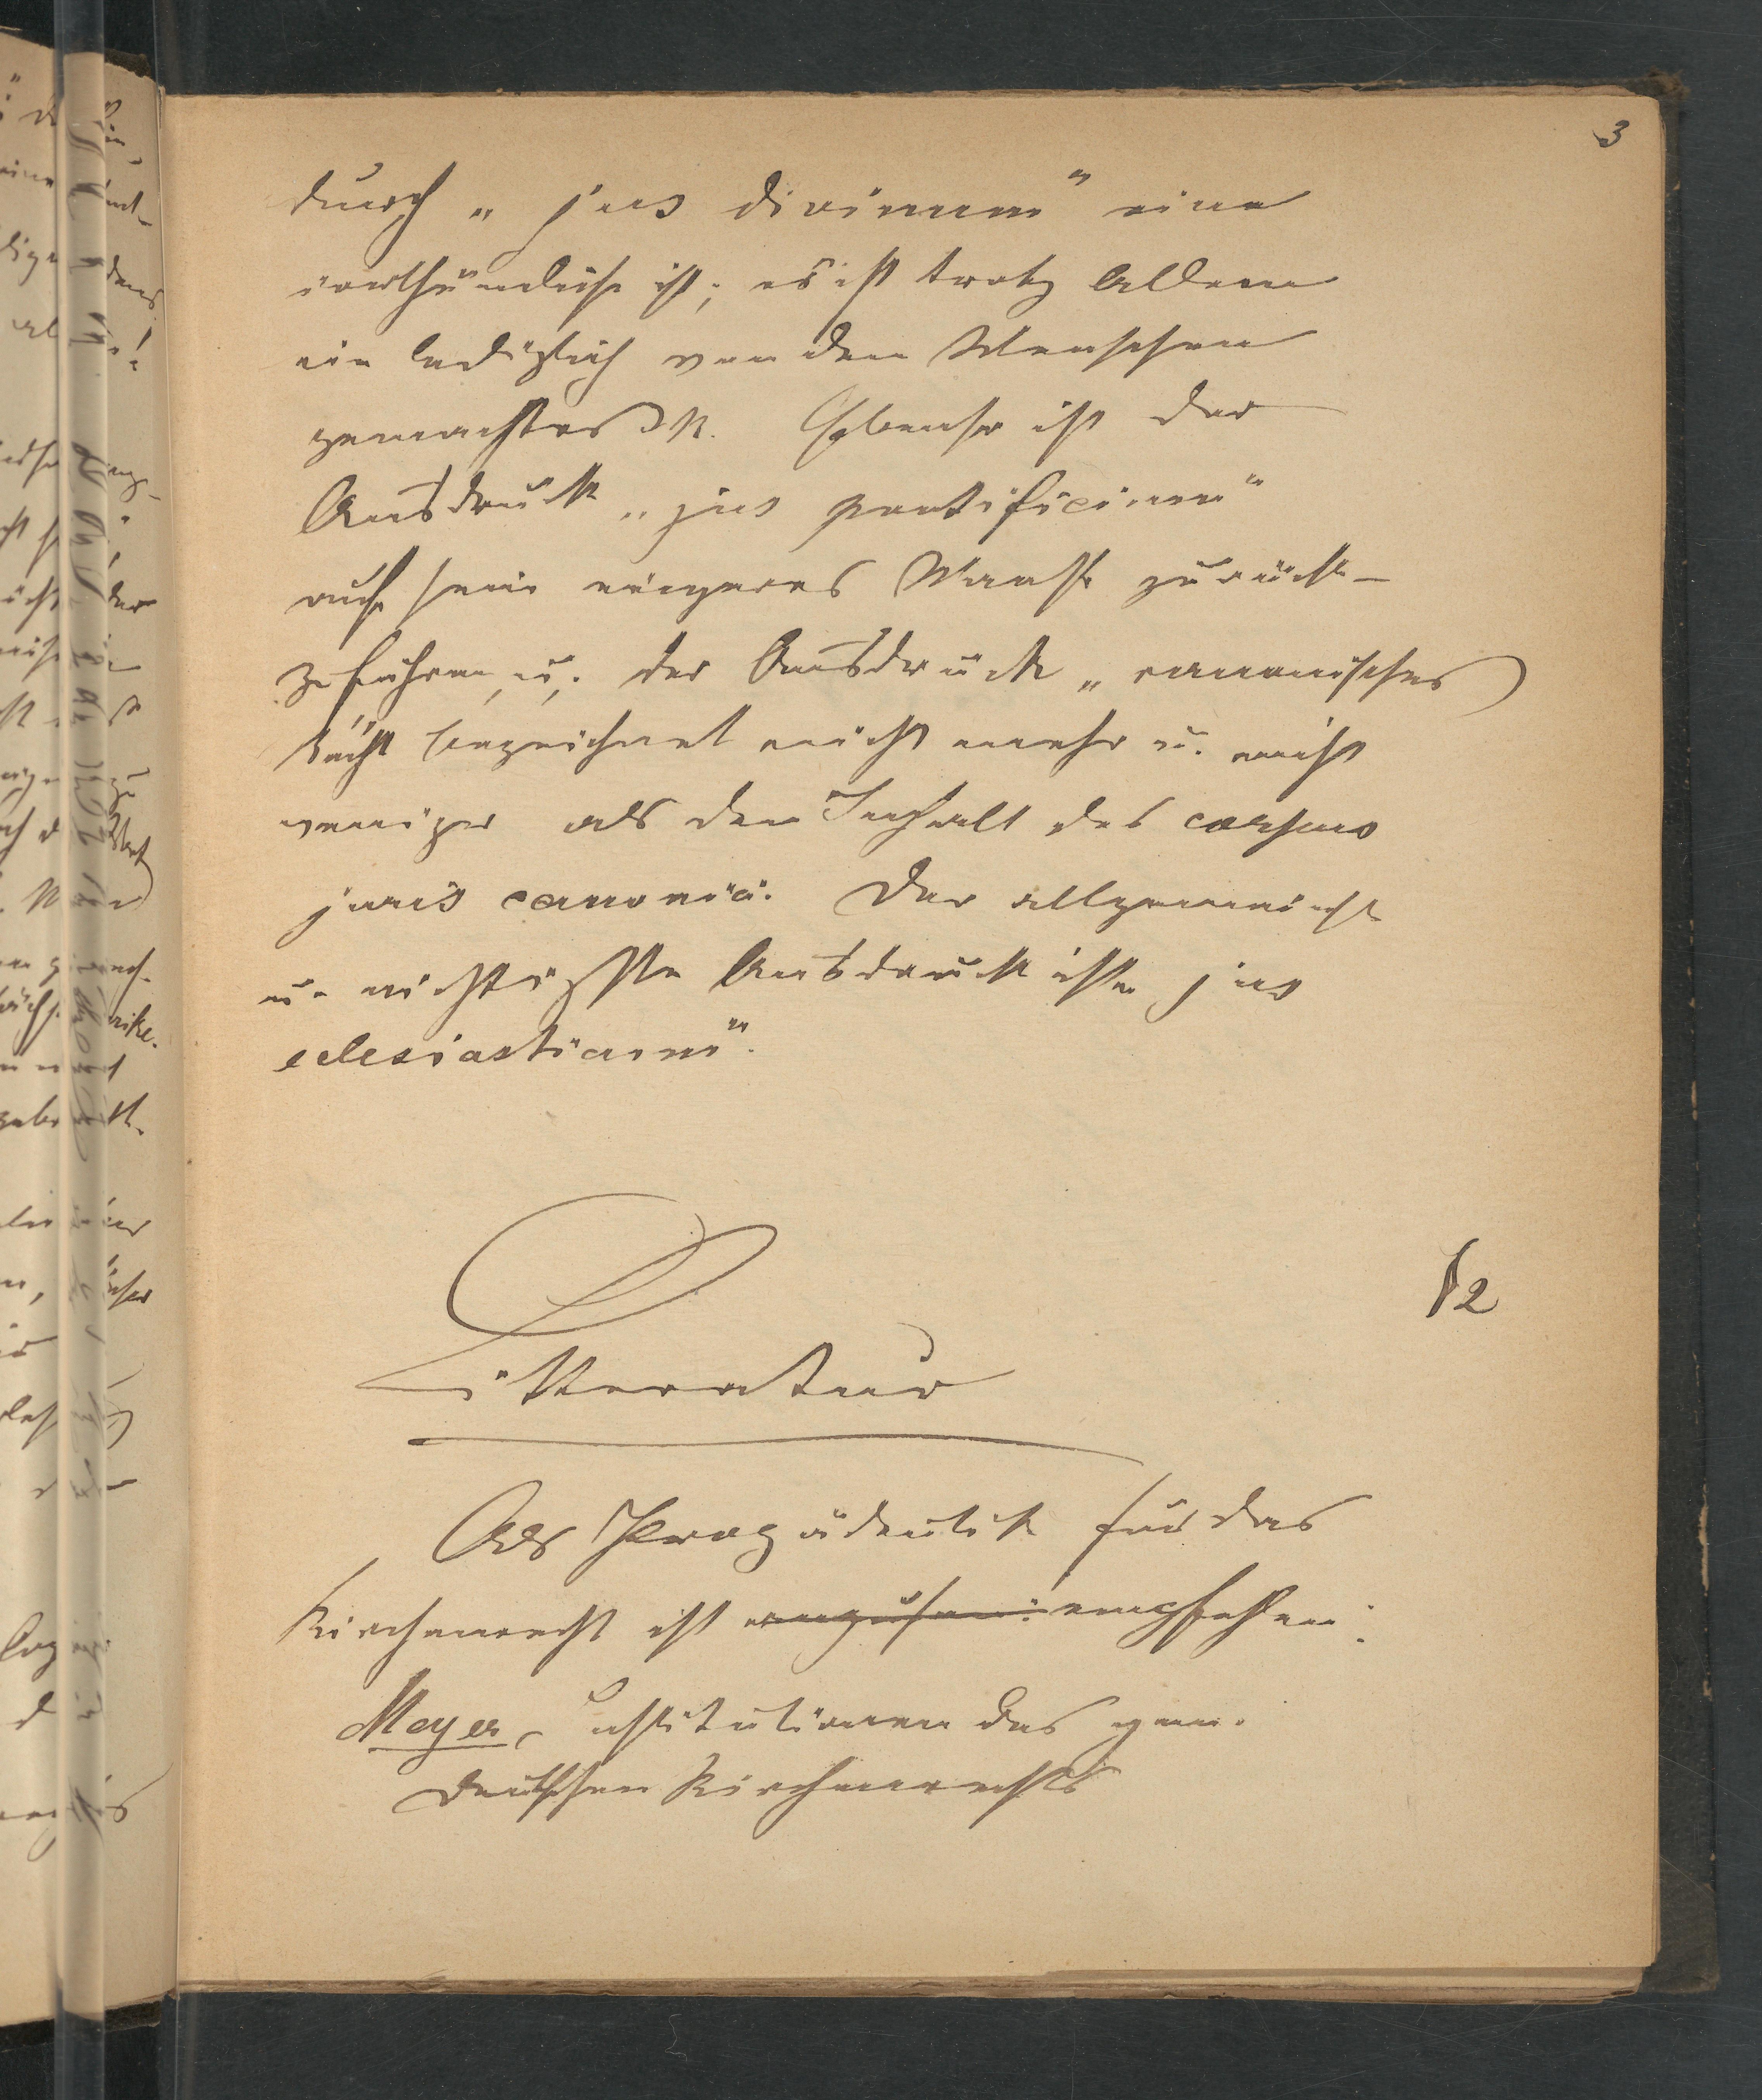 3
durch „jus divinum“ eine
irrthümliche ist; es ist trotz Allem
ein lediglich von den Menschen
gemachtes R. Ebenso ist der
Ausdruck „jus pontificium“
auf sein engeres Maaß zurück-
zuführen, u. der Ausdruck „canonisches
Recht bezeichnet nicht mehr u. nicht
weniger als den Inhalt des corpus
juris canonici. Der allgemeinste
u. richtigste Ausdruck ist „jus
eclesiasticum“.
§2
Litteratur
Als Propädeutik für das
Kirchenrecht ist empfehlen:
Meyer, Institutionen des gem.
deutschen Kirchenrechts